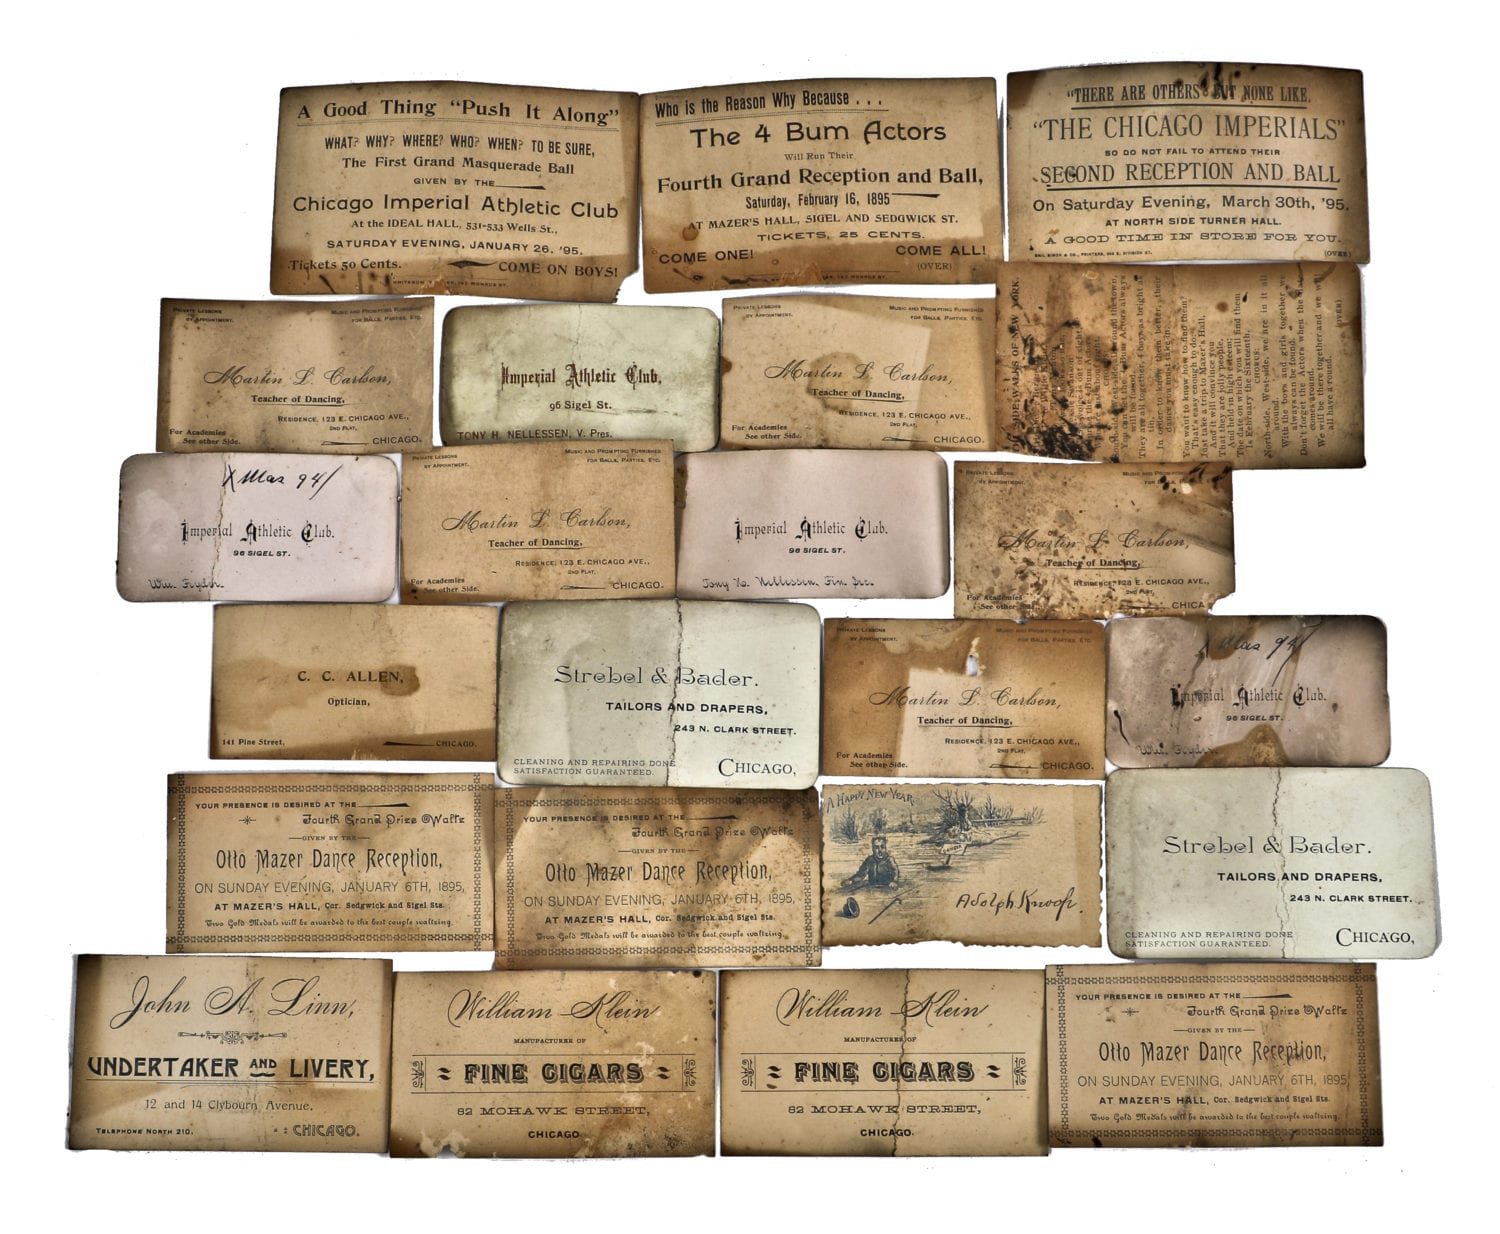 A Good Thing "Push It Along"
WHAT? WHY? WHERE? WHO? WHEN? TO BE SURE,
The First Grand Masquerade Ball
GIVEN BY THE
Chicago Imperial Athletic Club
At the IDEAL HALL, 531-533 Wells St.,
SATURDAY EVENING, JANUARY 26. '95.
Tickets 50 Cents. COME ON BOYS!
Who is the Reason Why Because . . .
The 4 Bum Actors
Will Run Their
Fourth Grand Reception and Ball,
Saturday, February 16, 1895
AT MAZER'S HALL, SIGEL AND SEDGWICK ST.
TICKETS, 25 CENTS.
COME ONE! COME ALL!
(OVER)
"THERE ARE OTHERS" BUT NONE LIKE,
"THE CHICAGO IMPERIALS"
SO DO NOT FAIL TO ATTEND THEIR
SECOND RECEPTION AND BALL
On Saturday Evening, March 30th, '95,
AT NORTH SIDE TURNER HALL.
A GOOD TIME IN STORE FOR YOU.
(OVER)
Private Lessons by Appointment.
Music and Prompting Furnished for Balls, Parties, Etc.
Martin L. Carlson,
Teacher of Dancing,
Residence, 123 E. CHICAGO AVE.,
2ND FLAT,
For Academies
See other Side. CHICAGO.
Imperial Athletic Club,
96 Sigel St.
TONY H. NELLESSEN, V. Pres.
Private Lessons by Appointment.
Music and Prompting Furnished for Balls, Parties, Etc.
Martin L. Carlson,
Teacher of Dancing,
Residence, 123 E. CHICAGO AVE.,
2ND FLAT,
For Academies
See other Side. CHICAGO.
SIDEWALKS OF NEW YORK.
You want to know how to find them?
That's easy enough to do,
Just take a trip to Mazer's Hall,
And it will convince you
That they are jolly people,
And held in high esteem;
The date on which you will find them
Is February the Sixteenth.
CHORUS:
North-side, West-side, we are in it all around,
With the boys and girls together we can always be found.
Don't forget the Actors when the
comes around.
We will be there together and we will all have a round.
(OVER)
X Mas 94/
Imperial Athletic Club.
96 SIGEL ST.
Private Lessons by Appointment.
Music and Prompting Furnished for Balls, Parties, Etc.
Martin L. Carlson,
Teacher of Dancing,
Residence, 123 E. CHICAGO AVE.,
2ND FLAT,
For Academies
See other Side. CHICAGO.
Imperial Athletic Club.
96 SIGEL ST.
Tony H. Nellessen, Fin. Sec.
Private Lessons by Appointment.
Music and Prompting
Martin L. Carlson,
Teacher of Dancing,
Residence, 123 E. CHICAGO AVE.,
2ND FLAT,
For Academies
See other Side. CHICA
C. C. ALLEN,
Optician,
141 Pine Street, CHICAGO.
Strebel & Bader.
TAILORS AND DRAPERS,
243 N. CLARK STREET.
CLEANING AND REPAIRING DONE
SATISFACTION GUARANTEED. CHICAGO,
Private Lessons by Appointment.
Music and Prompting Furnished for Balls, Parties, Etc.
Martin L. Carlson,
Teacher of Dancing,
Residence, 123 E. CHICAGO AVE.,
2ND FLAT,
For Academies
See other Side. CHICAGO.
X Mas 94/
Imperial Athletic Club.
96 SIGEL ST.
YOUR PRESENCE IS DESIRED AT THE
Fourth Grand Prize Waltz
GIVEN BY THE
Otto Mazer Dance Reception,
ON SUNDAY EVENING, JANUARY 6TH, 1895,
AT MAZER'S HALL, Cor. Sedgwick and Sigel Sts.
Two Gold Medals will be awarded to the best couple waltzing.
YOUR PRESENCE IS DESIRED AT THE
Fourth Grand Prize Waltz
GIVEN BY THE
Otto Mazer Dance Reception,
ON SUNDAY EVENING, JANUARY 6TH, 1895,
AT MAZER'S HALL, Cor. Sedgwick and Sigel Sts.
Two Gold Medals will be awarded to the best couple waltzing.
A HAPPY NEW YEAR
DANGER
Adolph Knoop.
Strebel & Bader.
TAILORS AND DRAPERS,
243 N. CLARK STREET.
CLEANING AND REPAIRING DONE
SATISFACTION GUARANTEED. CHICAGO,
John A. Linn,
UNDERTAKER AND LIVERY,
12 and 14 Clybourn Avenue,
TELEPHONE NORTH 210. CHICAGO.
William Klein
MANUFACTURER OF
FINE CIGARS
82 MOHAWK STREET,
CHICAGO.
William Klein
MANUFACTURER OF
FINE CIGARS
82 MOHAWK STREET,
CHICAGO.
YOUR PRESENCE IS DESIRED AT THE
Fourth Grand Prize Waltz
GIVEN BY THE
Otto Mazer Dance Reception,
ON SUNDAY EVENING, JANUARY 6TH, 1895,
AT MAZER'S HALL, Cor. Sedgwick and Sigel Sts.
Two Gold Medals will be awarded to the best couple waltzing.